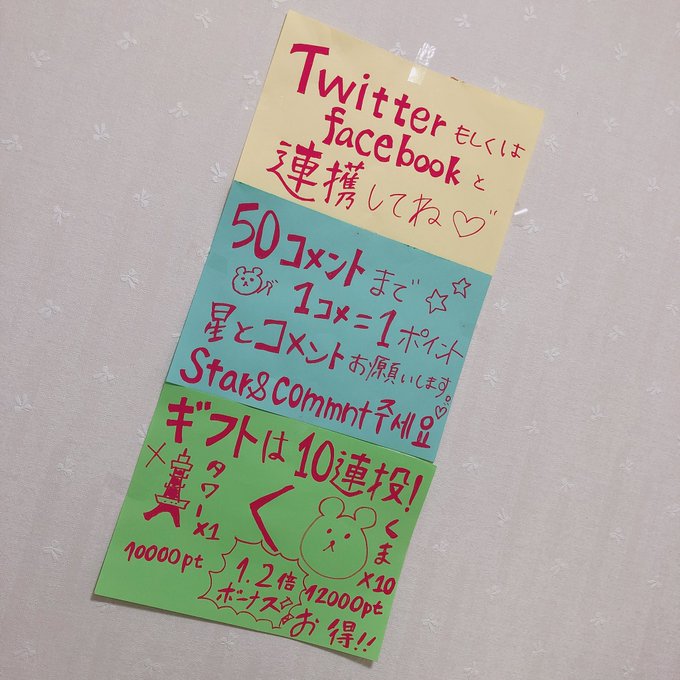 Twitterもしくは
facebookと
連携してね♡
50コメントまで
1コメ=1ポイント
星とコメントお願いします。♡
Star&commnt주세요
ギフトは10連投!
×タワー×1
く
くま×10
10000pt
1.2倍
ボーナス
12000pt
お得!!